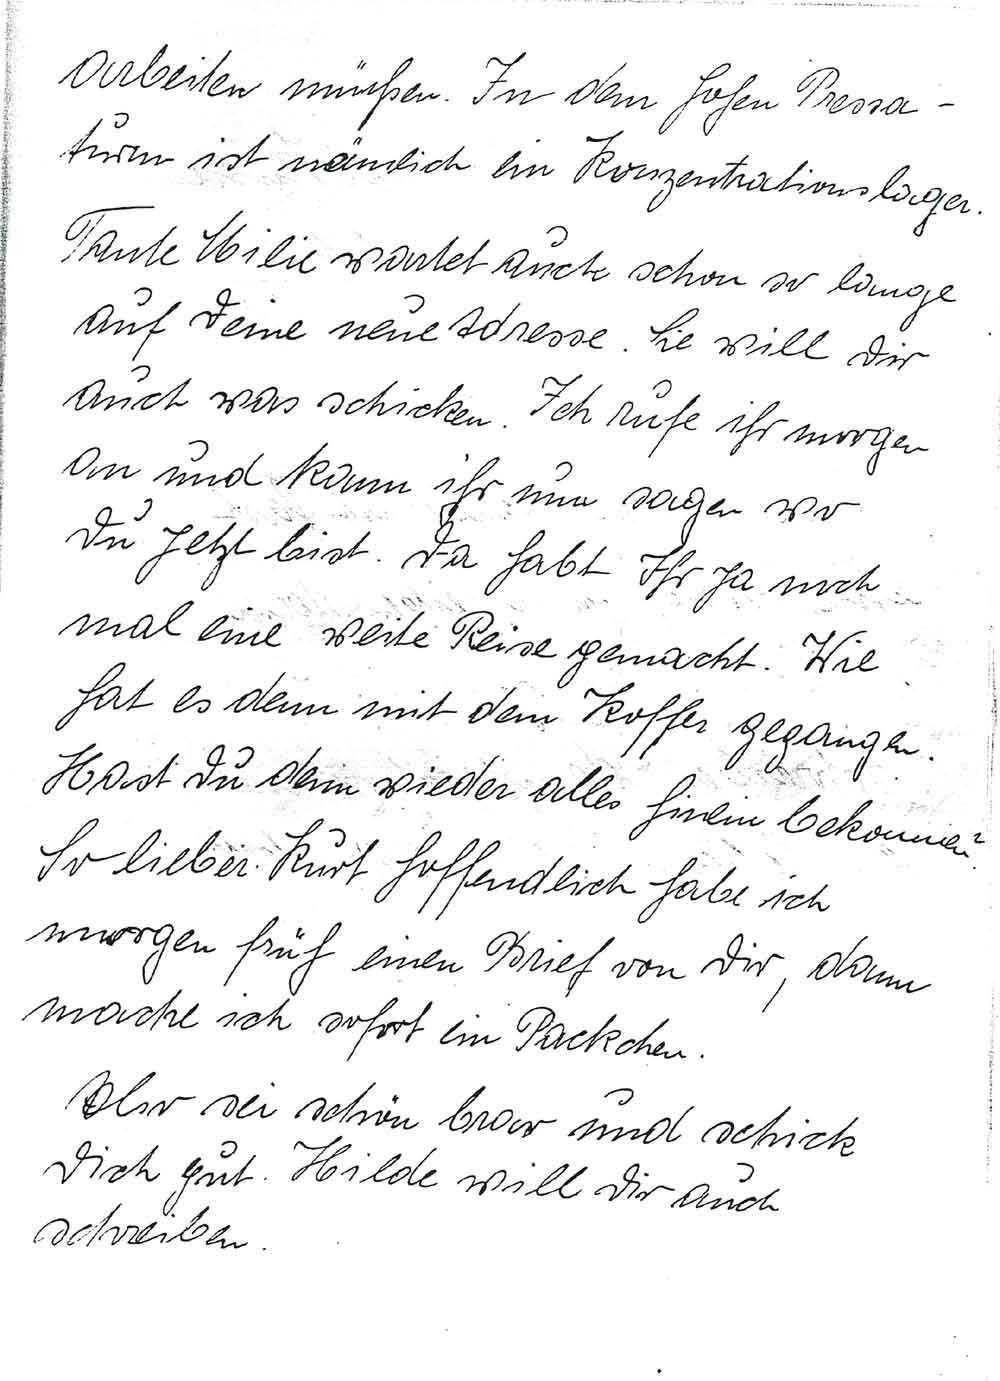 Arbeiten müßen. In dem hohen Pressa-
turm ist nämlich ein Konzentrationslager.
Tante Milie wartet auch schon so lange
auf Deine neue Adresse. Sie will Dir
auch was schicken. Ich rufe ihr morgen
an und kann ihr nun sagen wo
Du jetzt bist. Da habt Ihr ja noch
mal eine weite Reise gemacht. Wie
hat es denn mit dem Koffer gegangen.
Hast Du denn wieder alles hinein bekommen?
So lieber Kurt hoffendlich habe ich
morgen früh einen Brief von Dir, dann
mache ich sofort ein Packchen.
Also sei schön brav und schick
Dich gut. Hilde will Dir auch
schreiben.